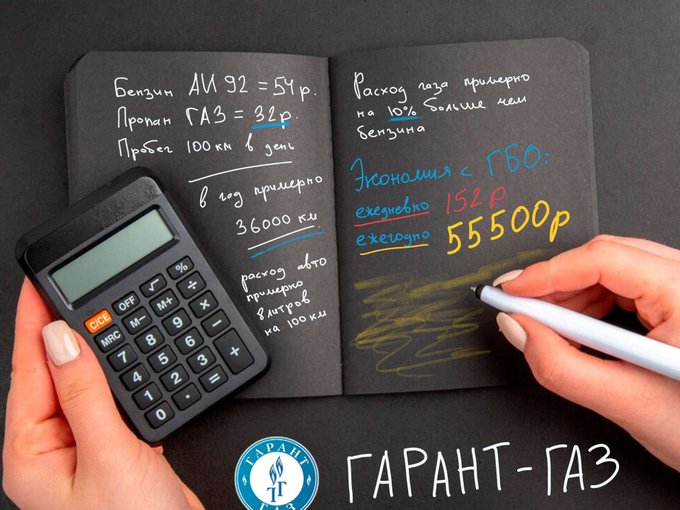 Бензин АИ 92 = 54 р.
Пропан ГАЗ = 32р.
Пробег 100 км в день
в год примерно
36000 км.
расход авто
примерно
8 литров
на 100 км
Расход газа примерно
на 10% больше чем
бензина
Экономия с ГБО:
ежедневно 152р
ежегодно 55500р
C/CE OFF √ %
MRC M− M+ ÷
7 8 9 ×
4 5 6 −
1 2 3 +
0 . =
ГАРАНТ
ГГ
ГАЗ
ГАРАНТ-ГАЗ